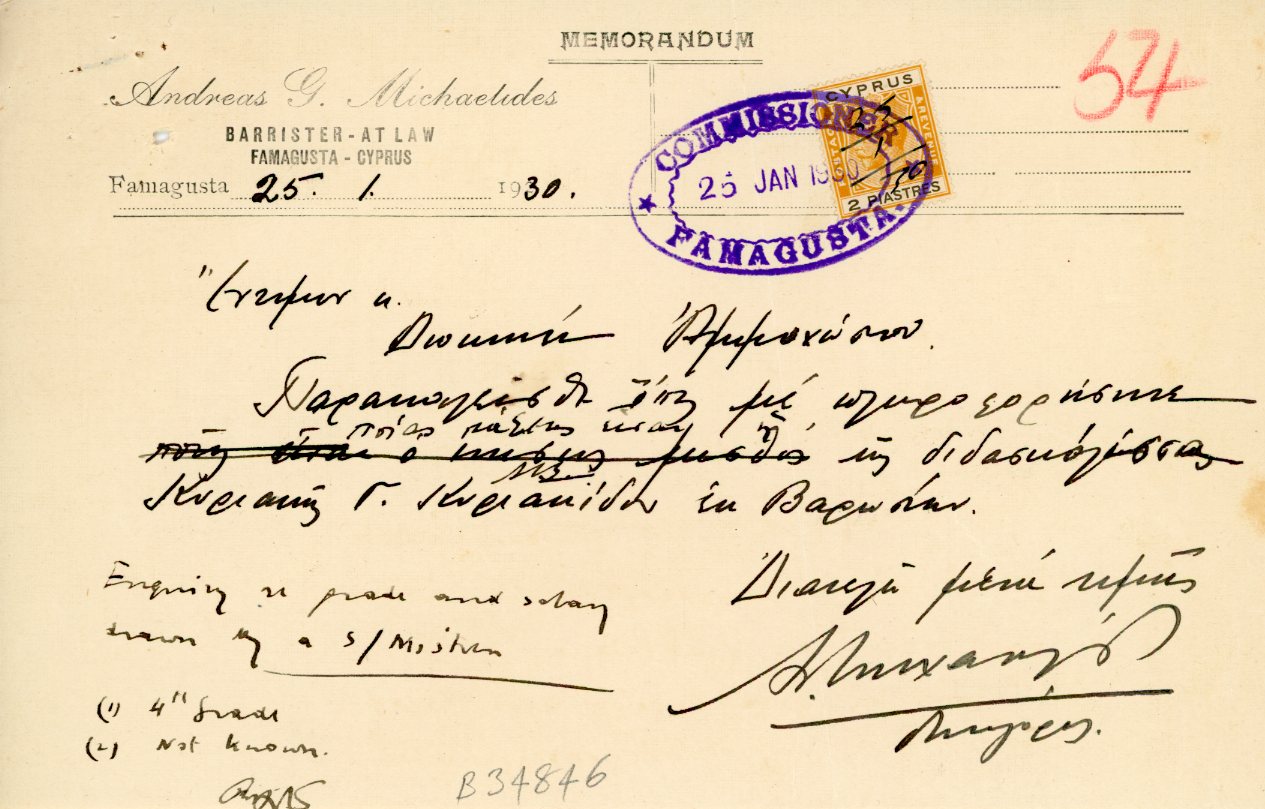 MEMORANDUM
54
Andreas G. Michaelides
BARRISTER-AT LAW
FAMAGUSTA-CYPRUS
Famagusta 25. 1. 1930.
CYPRUS
POSTAGE & REVENUE
2 PIASTRES
25/1/30
COMMISSIONER
25 JAN 1930
FAMAGUSTA.
Ἔντιμον κ.
Διοικητὴν Ἀμμοχώστου.
Παρακαλεῖσθε ὅπως μὲ πληροφορήσητε
ποίας τάξεως εἶναι ἡ
ὁ μισθὸς τῆς διδασκαλίσσας
Κυριακῆς Γ. Κυριακίδου ἐκ Βαρωσίων.
Διατελῶ μετὰ τιμῆς
Δικηγόρος.
Enquiry re grade and salary
drawn by a S/Mistress
(1) 4th Grade
(2) Not known.
B34846